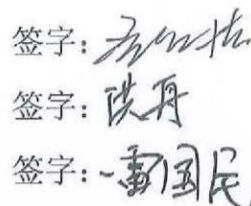 签字：
签字：洪丹
签字：雷国民